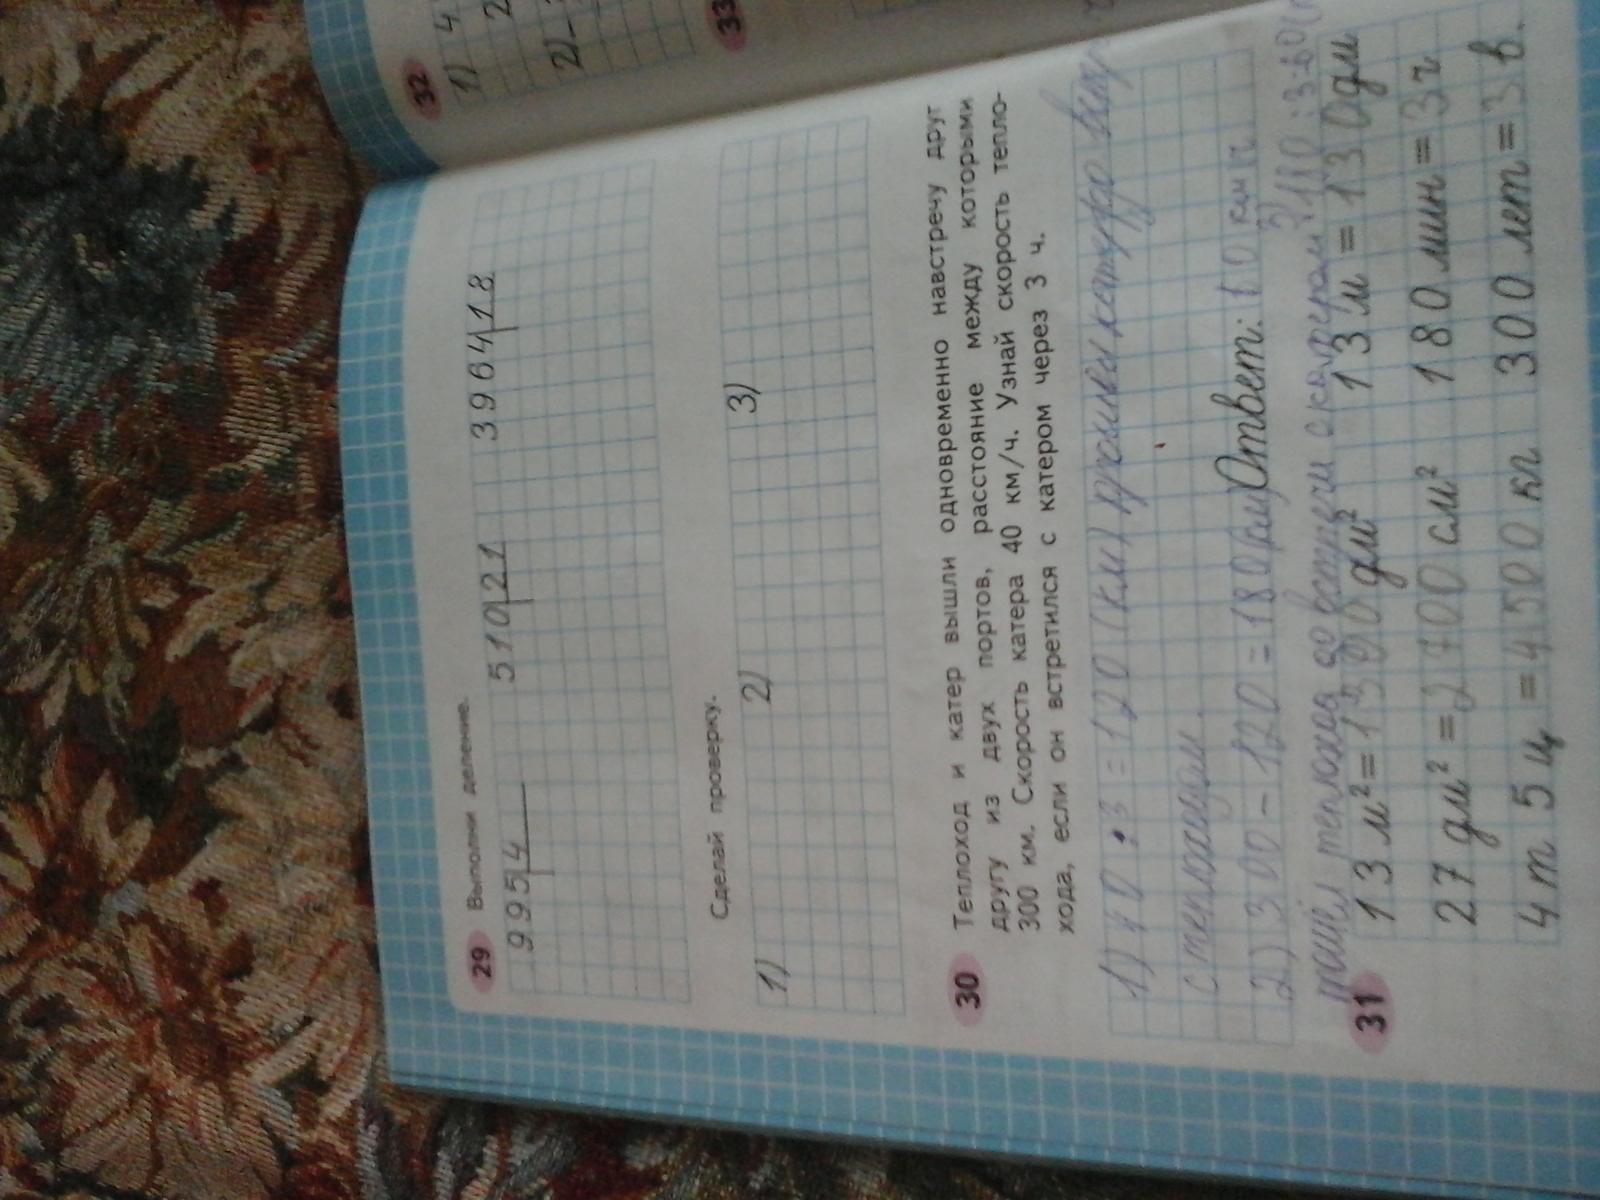 29 Выполни деление.
995 4 510 21 3964 18
Сделай проверку.
1) 2) 3)
30 Теплоход и катер вышли одновременно навстречу друг
другу из двух портов, расстояние между которыми
300 км. Скорость катера 40 км/ч. Узнай скорость тепло-
хода, если он встретился с катером через 3 ч.
1) 40 · 3 = 120 (км)
с теплоходом.
2) 300 - 120 = 180 (км) Ответ: 60 км/ч
теплоход до встречи с катером 3) 180 : 3 = 60
31 13 м² = 1300 дм² 13 м = 130 дм
27 дм² = 2700 см² 180 мин = 3 ч
4 т 5 ц = 4500 кг 300 лет = 3 в.
32
1) 4
2
2) -
33